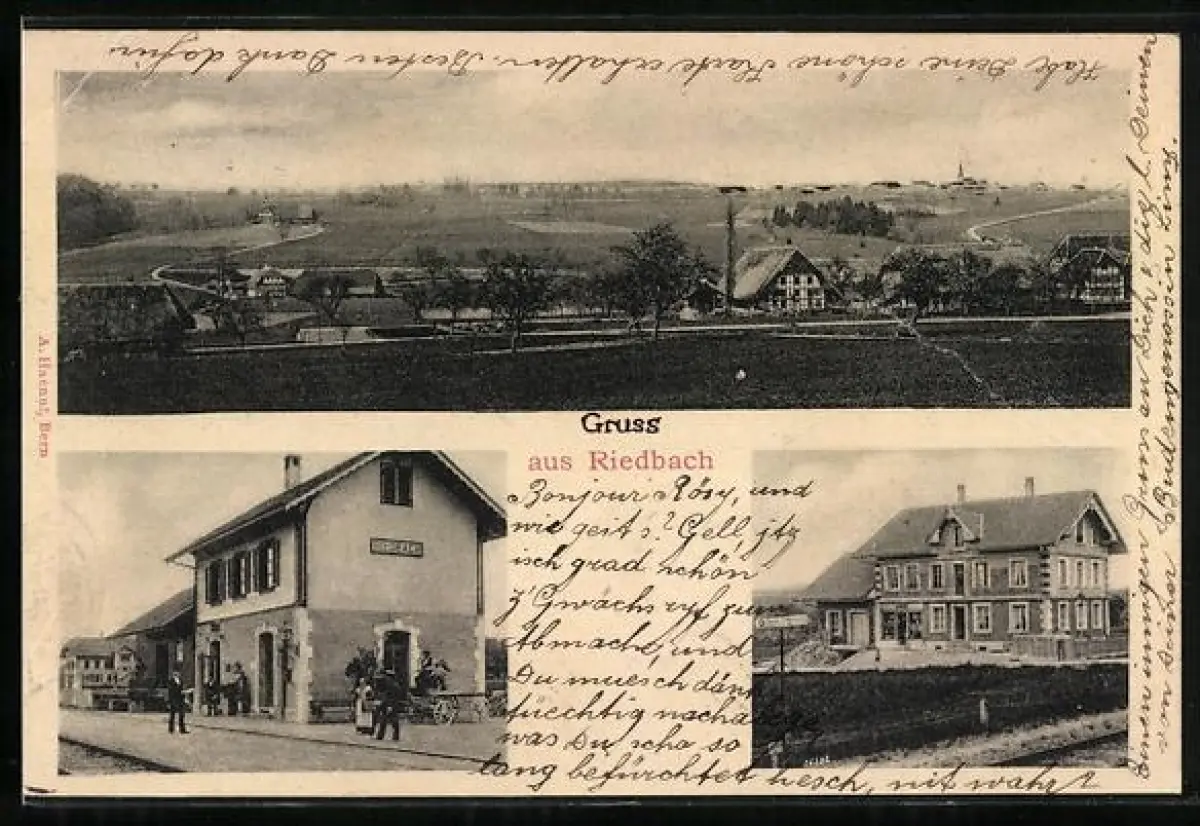 Habe Deine schöne Karte erhalten. Besten Dank dafür
Gruss
aus Riedbach
Bonjour Rösy, und
wie geit's? Gell, jtz
isch grad schön
z'Gwächs ryf zum
Abmache, und
Du muesch dänk
tüechtig nacha
was Du scho so
lang befürchtet hesch, nit wahr?
Einen innigen Gruss an Dich &
Deinen
von Deiner Budengenossin Lina.
A. Haenni, Bern.
RIEDBACH